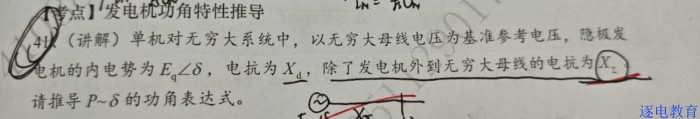 【考点】发电机功角特性推导
41.（讲解）单机对无穷大系统中，以无穷大母线电压为基准参考电压，隐极发
电机的内电势为 Eq∠δ，电抗为 Xd，除了发电机外到无穷大母线的电抗为 XΣ
请推导 P~δ 的功角表达式。
逐电教育